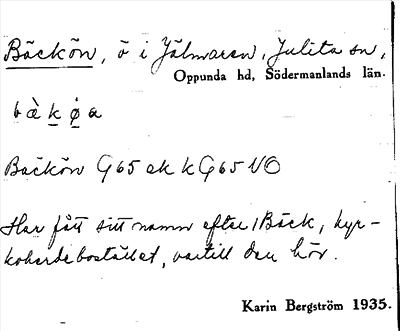 Bäckön, ö i Hjälmaren, Julita sn,
Oppunda hd, Södermanlands län.
bàkǿa
Bäckön G65 ek k G65 NO
Har fått sitt namn efter Bäck, kyr-
koherdebostället, vartill den hör.
Karin Bergström 1935.